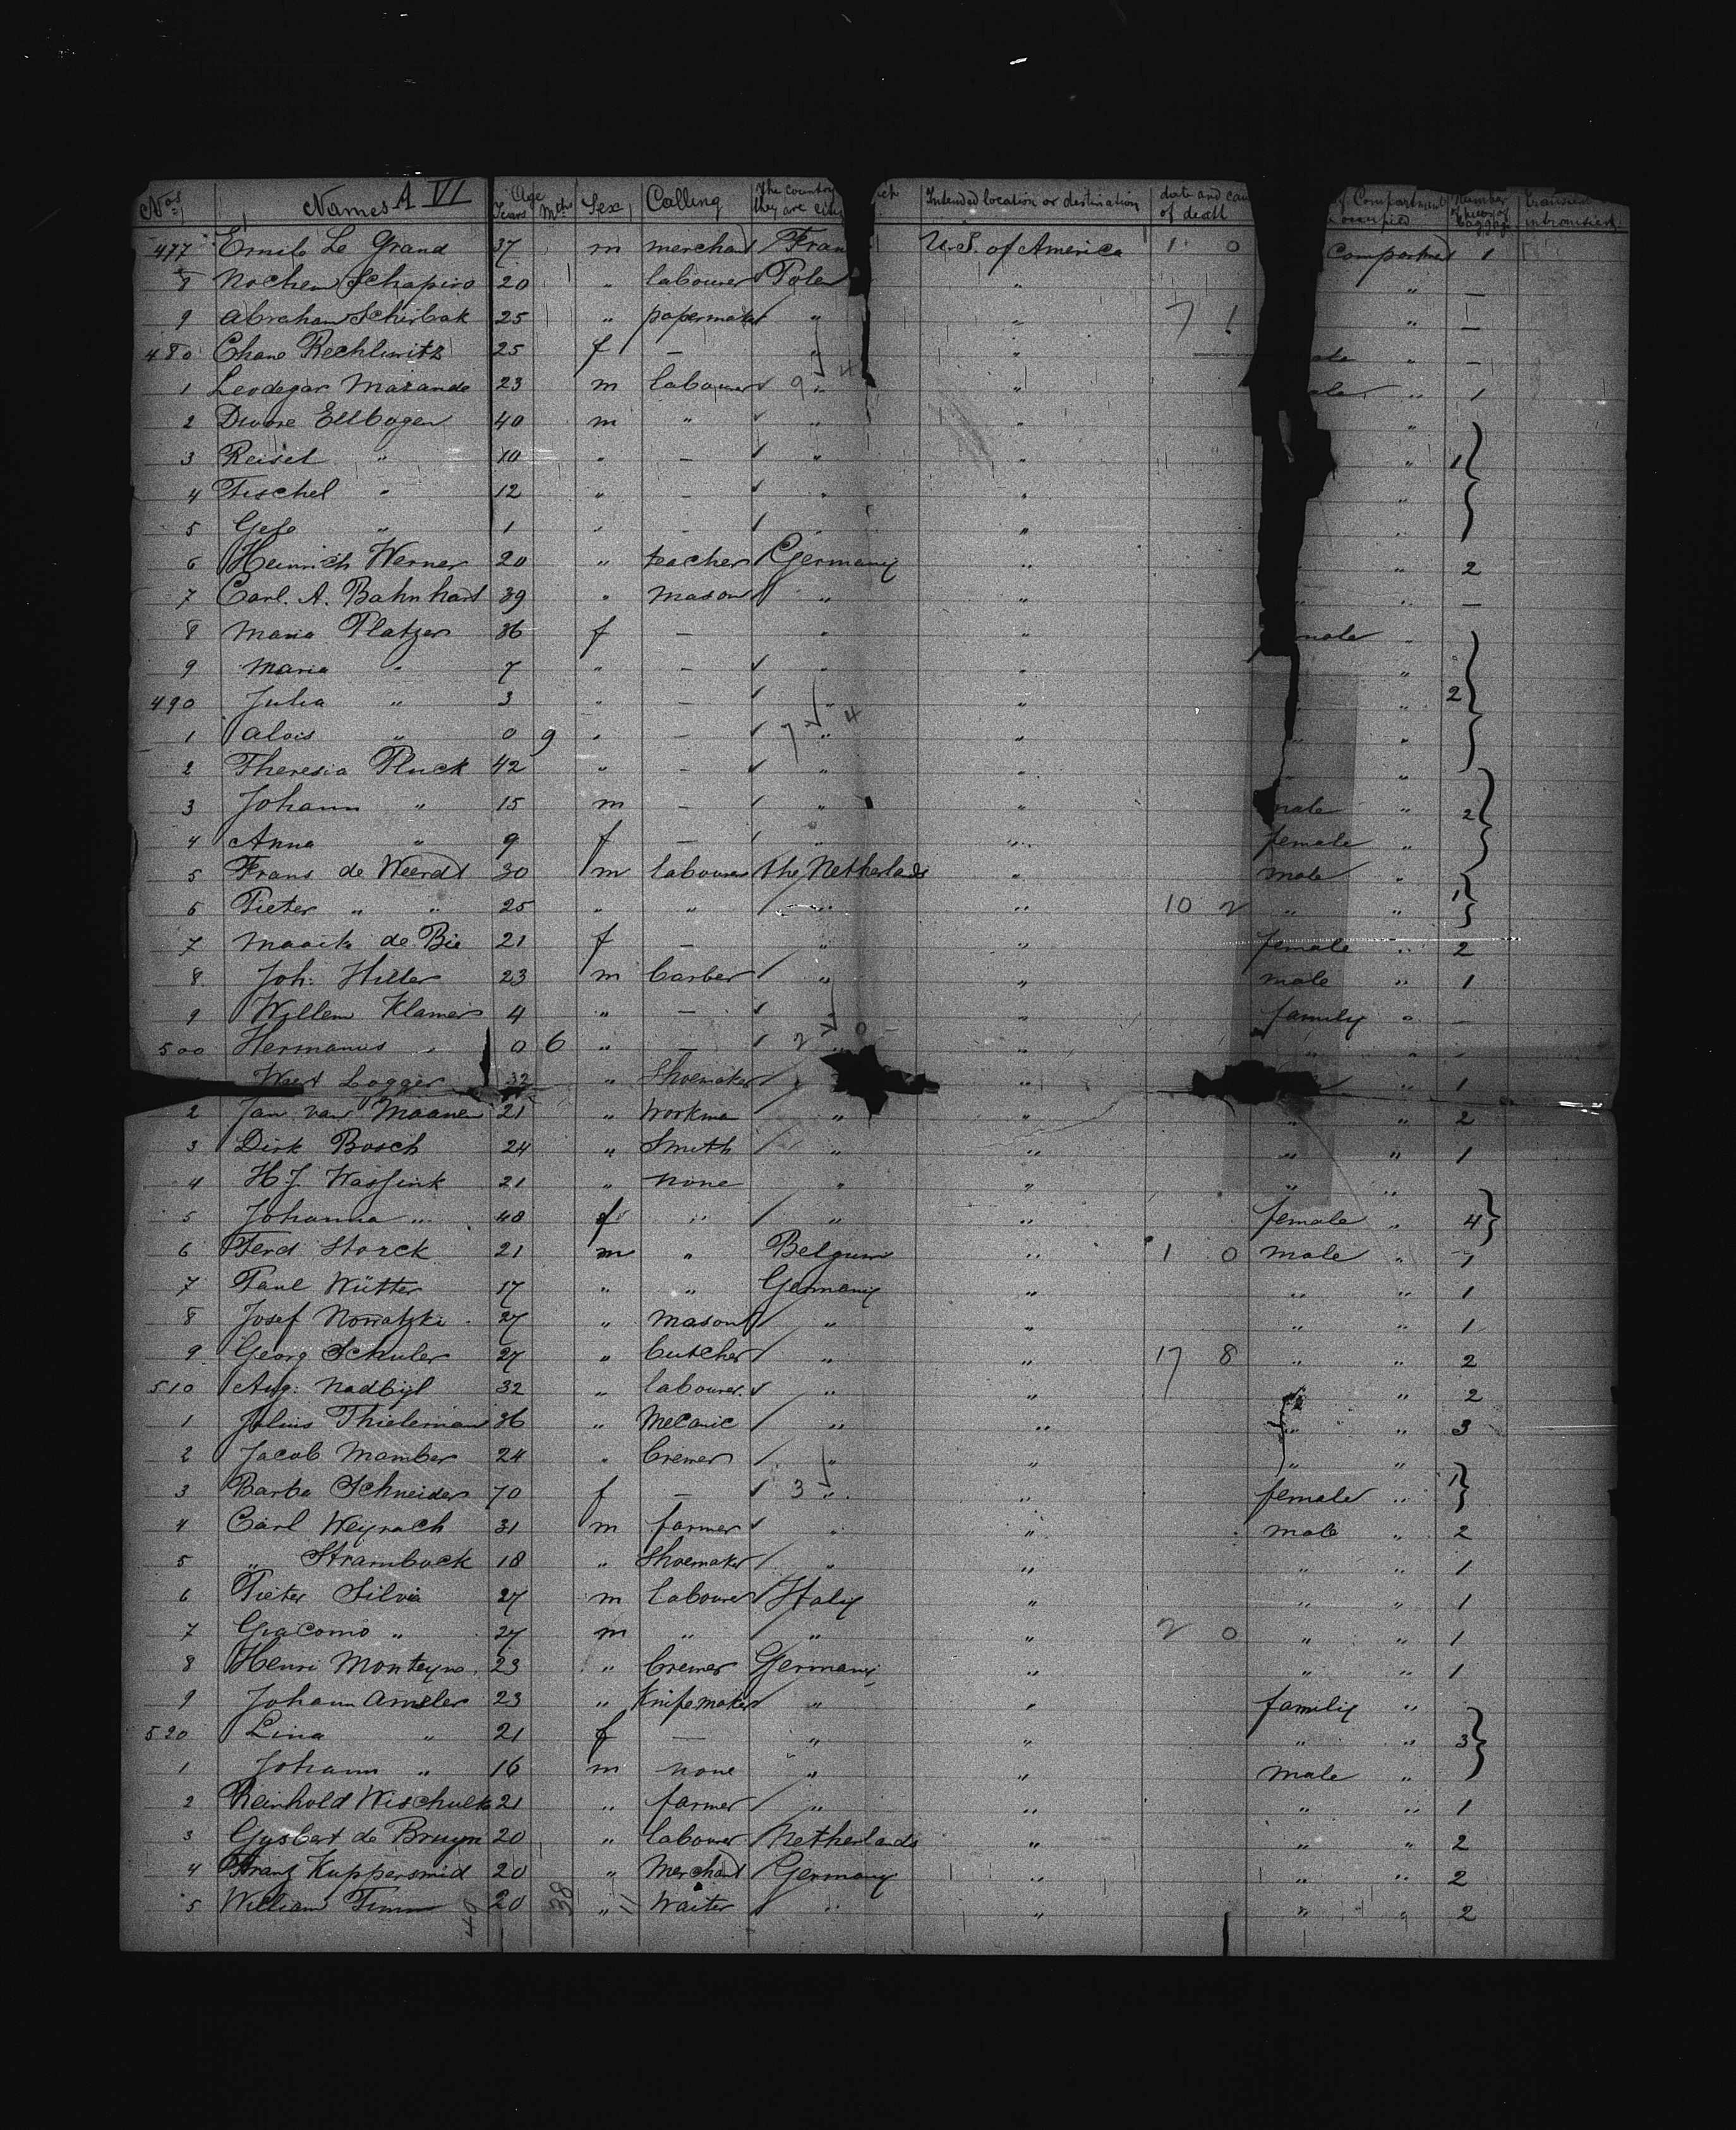 Nos Names A VI Age Years Mths Sex Calling The country they are Intended location or destination date and of death Compartment occupied Number of pieces of baggage
477 Emile Le Grand 37 m merchant Fran U.S. of America 1 0 Compartment 1
8 Nochem Schapiro 20 " labourer " —
9 Abraham Schirbak 25 " papermaker " " 7 1 " —
480 Chane Rechlewitz 25 f — " " " —
1 Leodegar Marande 23 m labourer 9 " 4 " " 1
2 Dwore Ellbogen 40 m " " " "
3 Reisel " 10 " — " " " 1
4 Fischel " 12 " — " " "
5 " 1 " — " "
6 Heinrich Werner 20 " teacher Germany " " 2
7 Carl. A. Bahnhart 39 " mason " " " " —
8 Maria Platzer 36 f — " " "
9 Maria " 7 " — " " "
490 Julia " 3 " — " " " " 2
1 Alois " 0 9 " — 7 " 4 " " "
2 Theresia Pluck 42 " — " " " "
3 Johann " 15 m — " " male " 2
4 Anna " 9 f — " " female "
5 Frans de Weerdt 30 m labourer the Netherlands " male " 1
6 Pieter " " 25 " " " " 10 2 " "
7 Maaike de Bie 21 f — " " female " 2
8 Joh. Hiller 23 m barber " " male " 1
9 Willem Klamer 4 " — " family " —
500 Hermanus " 0 6 " — 2 " 0 " " " -
Weert Logger 32 " Shoemaker " " 1
2 Jan van Maanen 21 " workma " " " " 2
3 Dirk Bosch 24 " Smith " " " " 1
4 H.J. Wassink 21 " none " " " "
5 Johanna " 48 f " " " female " 4
6 Ferd Storck 21 m " Belgium " 1 0 male " 1
7 Paul Wütter 17 " " Germany " " " 1
8 Josef Nowatzki 27 " mason " " " " 1
9 Georg Schuler 27 " butcher " " 17 8 " " 2
510 Aug. Nadbyl 32 " labourer. " " " " 2
1 Julius Thieleman 36 " Mecanic " " " " 3
2 Jacob Mamber 24 " bremer " " " "
3 Barba Schneider 70 f — 3 " " female " 1
4 Carl Weyrach 31 m farmer " " male " 2
5 " Strambock 18 " Shoemaker " " " " 1
6 Pieter Silvia 27 m labourer Italy " " " 1
7 Giacomo " 27 m " " " 2 0 " " 1
8 Henri Monteyne 23 " bremer Germany " " " 1
9 Johann Ameler 23 " Knifemaker " " family "
520 Lina " 21 f — " " " " 3
1 Johann " 16 m none " " male "
2 Reinhold Wischulk 21 " farmer " " " " 1
3 Gysbert de Bruyn 20 " labourer Netherlands " " " 2
4 Franz Kuppersmid 20 " Merchant Germany " " " 2
5 William Timm 20 " Waiter " " " " 2
40 38 11